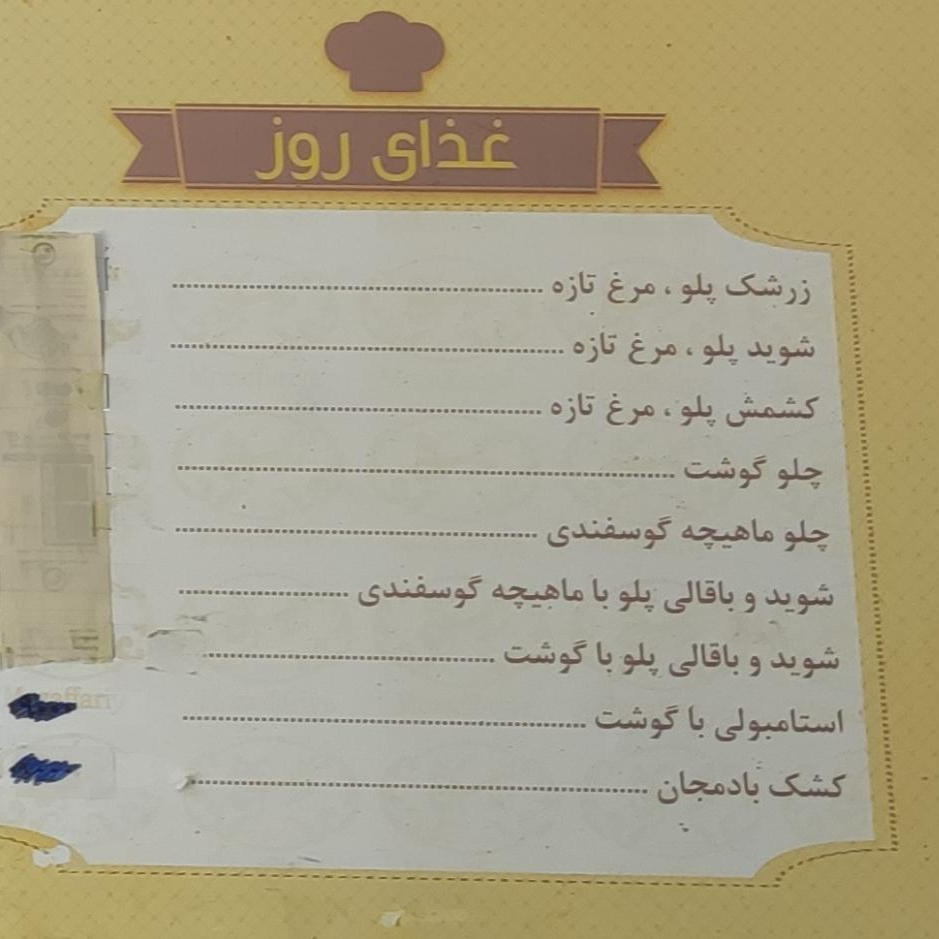 غذای روز
زرشک پلو ، مرغ تازه
شوید پلو ، مرغ تازه
کشمش پلو ، مرغ تازه
چلو گوشت
چلو ماهیچه گوسفندی
شوید و باقالی پلو با ماهیچه گوسفندی
شوید و باقالی پلو با گوشت
استامبولی با گوشت
کشک بادمجان